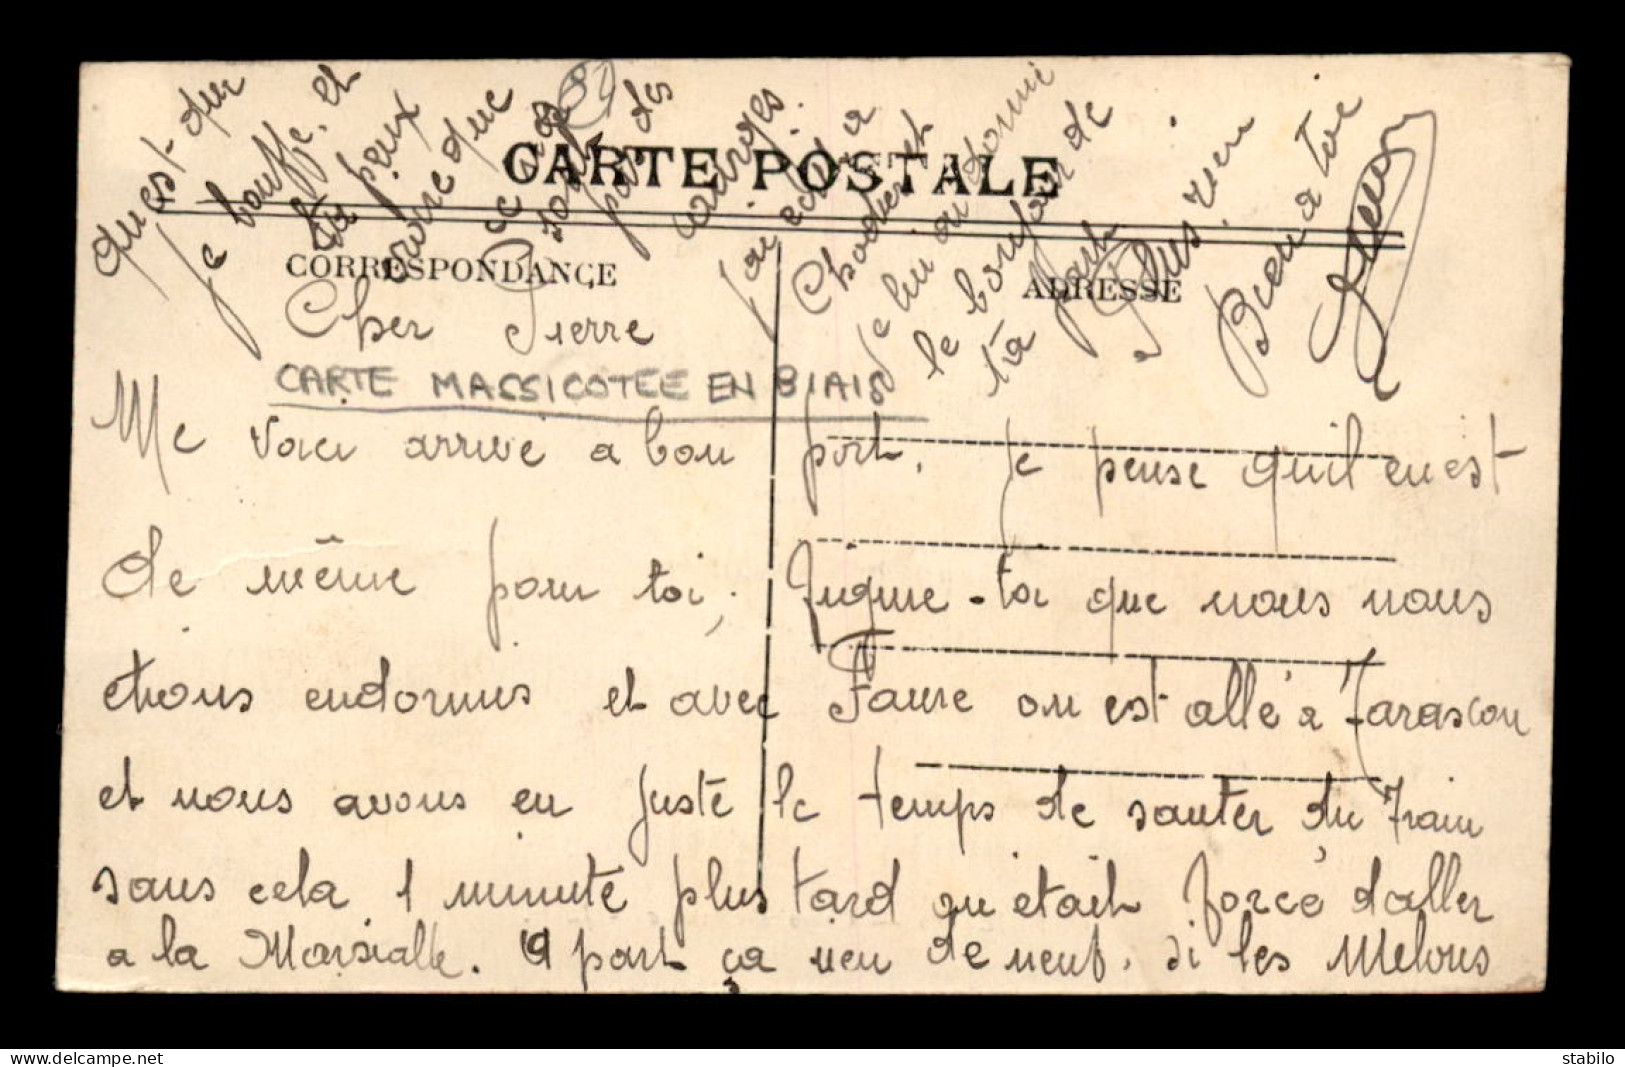 CARTE POSTALE
CORRESPONDANCE
ADRESSE
Cher Pierre
CARTE MASSICOTEE EN BIAIS
Me voici arrivé a bon port. Je pense qu'il en est
de même pour toi, Figure-toi que nous nous
etions endormis et avec Faure on est allé à Tarascon
et nous avons eu juste le temps de sauter du train
sans cela 1 minute plus tard on était forcé d'aller
a la Marsialle. A part ça rien de neuf. Si les Melons
qu'est-que
je bouffe, et
tu peux
croire que
je
sont
pas des
courges
j'ai écrit a
Chodier et
je lui ai donné
le bonjour de
ta part
Plus rien
Bien a toi
delta - stabilo